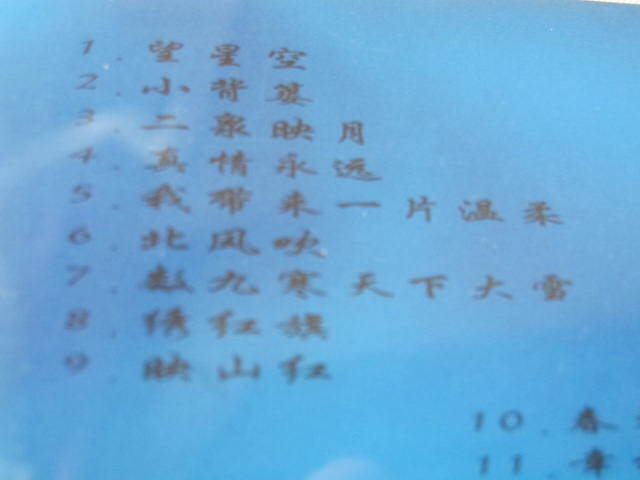 1.望星空
2.小背篓
3.二泉映月
4.真情永远
5.我带来一片温柔
6.北风吹
7.数九寒天下大雪
8.绣红旗
9.映山红
10.春
11.幸